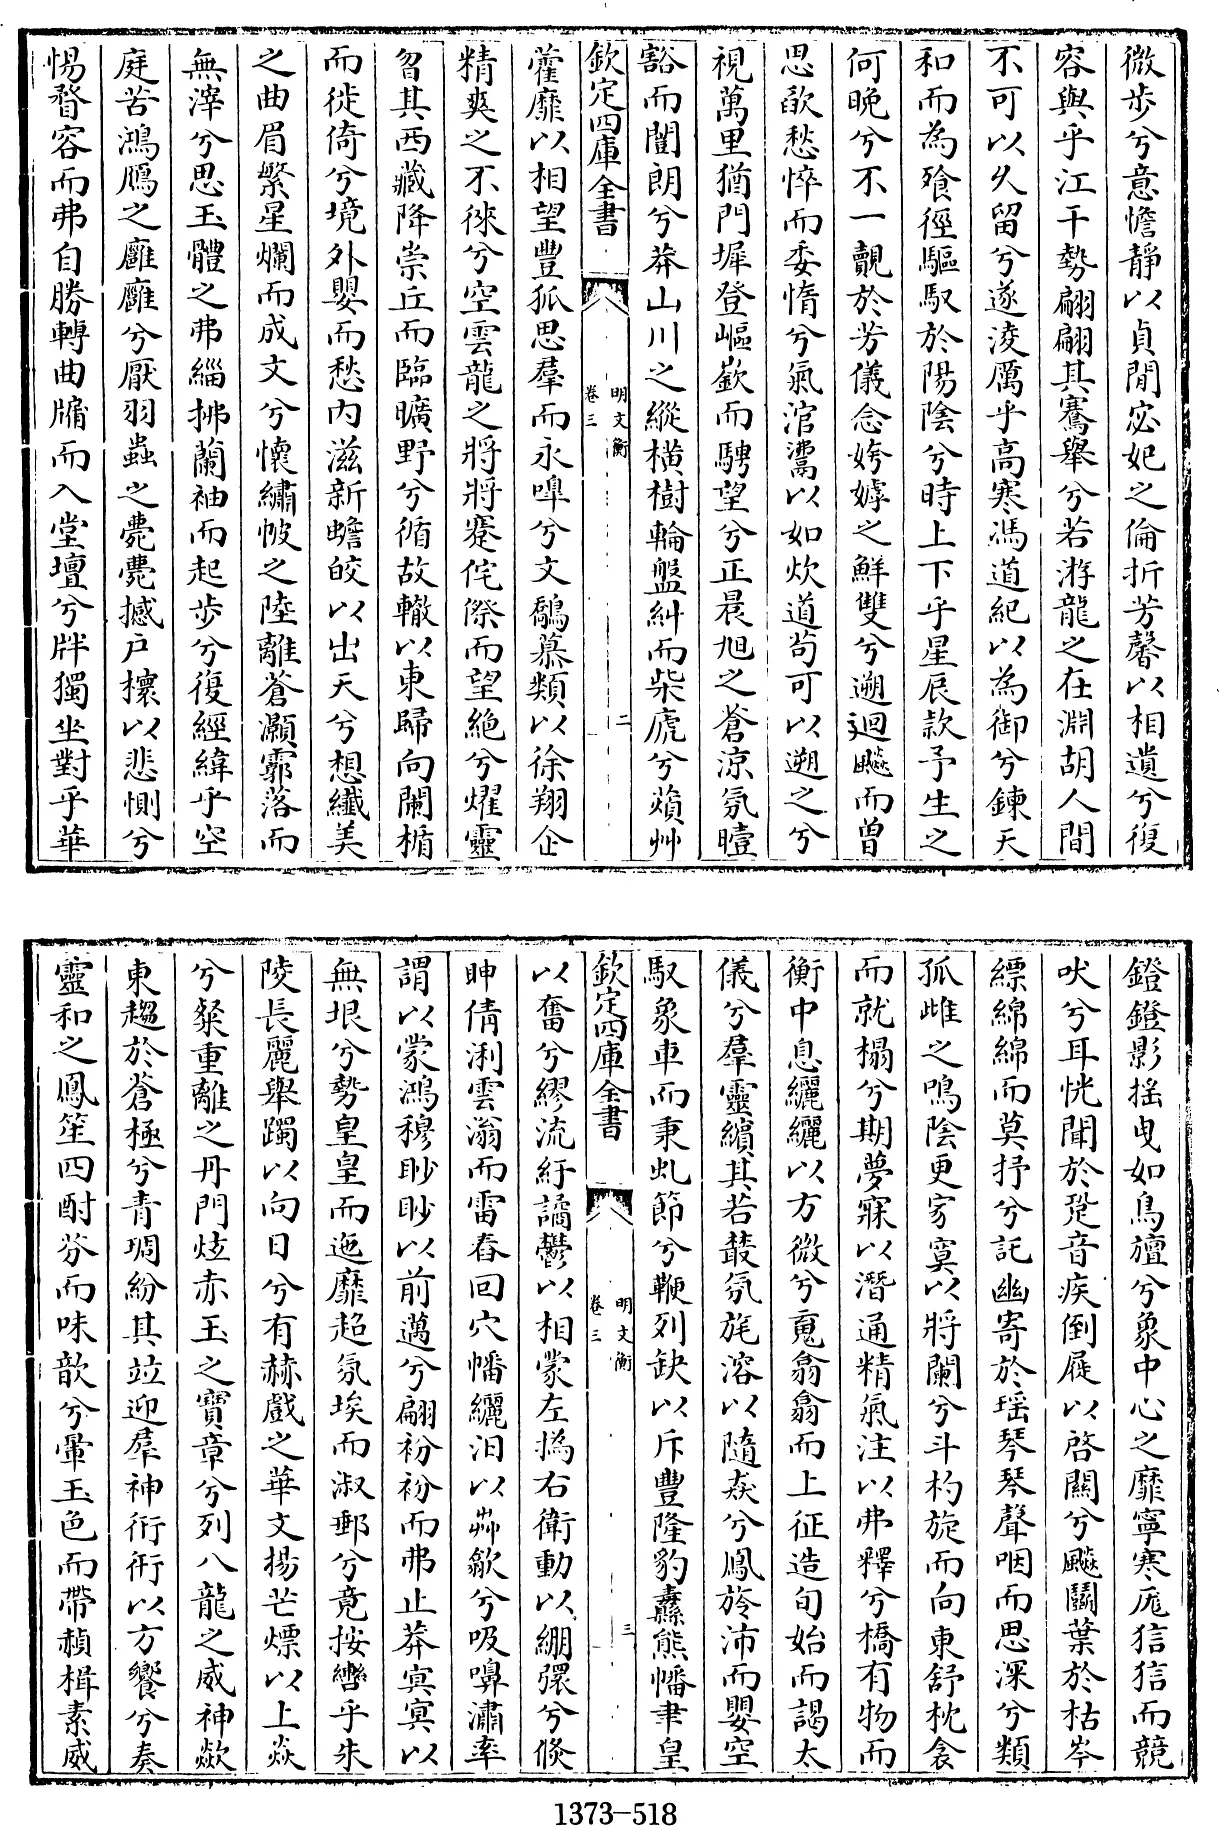 微歩兮意憺靜以貞閒宓妃之倫折芳馨以相遺兮復
容與乎江干勢翩翩其騫舉兮若游龍之在淵胡人間
不可以久留兮遂淩厲乎高寒馮道紀以為御兮鍊天
和而為飱徑驅馭於陽陰兮時上下乎星辰款予生之
何晚兮不一覿於芳儀念姱嫭之鮮雙兮遡迴飈而曾
思欿愁悴而委惰兮氣涫灊以如炊道苟可以遡之兮
視萬里猶門墀登嶇嶔而騁望兮正晨旭之蒼涼氛曀
豁而闓朗兮莽山川之縱橫樹輪盤糾而柴虒兮薠艸
欽定四庫全書
明文衡
卷三
二
藿靡以相望豐狐思羣而永嘷兮文鷮慕類以徐翔企
精爽之不徠兮空雲龍之將將蹇侘傺而望絶兮燿靈
曶其西藏降崇丘而臨曠野兮循故轍以東歸向闌楯
而徙倚兮境外嬰而愁内滋新蟾皎以出天兮想纖美
之曲眉繁星爛而成文兮懷繡帔之陸離蒼灝霩落而
無滓兮思玉體之弗緇拂蘭袖而起步兮復經緯乎空
庭苦鴻鴈之廱廱兮厭羽蟲之薨薨撼户櫰以悲惻兮
惕瞀容而弗自勝轉曲牖而入堂壇兮牉獨坐對乎華
鐙鐙影揺曳如鳥䄠兮象中心之靡寧寒厖狺狺而競
吠兮耳恍聞於跫音疾倒屣以啓關兮飈鬭葉於枯岑
縹綿綿而莫抒兮託幽寄於瑶琴琴聲咽而思深兮類
孤雌之鳴陰更家寞以將闌兮斗杓旋而向東舒枕衾
而就榻兮期夢寐以潛通精氣注以弗釋兮橋有物而
衡中息纚纚以方微兮䰟翕翕而上征造旬始而謁太
儀兮羣靈繽其若䕺氛旄溶以隨猋兮鳳旍沛而嬰空
馭象車而秉虬節兮鞭列缺以斥豐隆豹纛熊幡聿皇
欽定四庫全書
明文衡
卷三
三
以奮兮繆流紆譎鬱以相蒙左撝右衛動以綳彋兮倏
眒倩浰雲滃而雷舂回穴幡纚汨以茻歙兮吸嚊潚率
謂以蒙鴻穆眇眇以前邁兮翩衯衯而弗止莽寞寞以
無垠兮勢皇皇而迤靡超氛埃而淑郵兮竟按轡乎朱
陵長麗舉躅以向日兮有赫戲之華文揚芒熛以上焱
兮粲重離之丹門炫赤玉之寶章兮列八龍之威神歘
東趨於蒼極兮青琱紛其竝迎羣神衎衎以方饗兮奏
靈和之鳳笙四酎芬而味歆兮暈玉色而帶赬楫素威
1373-518